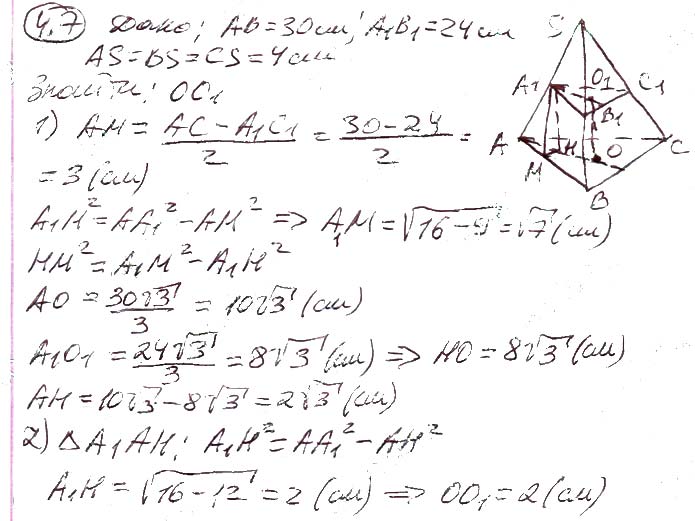 4.7 Дано: AB=30см; A₁B₁=24см
AS=BS=CS=4см
Знайти: OC₁
1) AM = (AC-A₁C₁)/2 = (30-24)/2 =
= 3 (см)
A₁H² = AA₁² - AM² => A₁M = √(16-9) = √7 (см)
HM² = A₁M² - A₁H²
AO = 30√3/3 = 10√3 (см)
A₁O₁ = 24√3/3 = 8√3 (см) => HO = 8√3 (см)
AH = 10√3 - 8√3 = 2√3 (см)
2) △A₁AH: A₁H² = AA₁² - AH²
A₁H = √(16-12) = 2 (см) => OO₁ = 2 (см)
S
A₁ O₁ C₁
B₁
A H O C
M
B